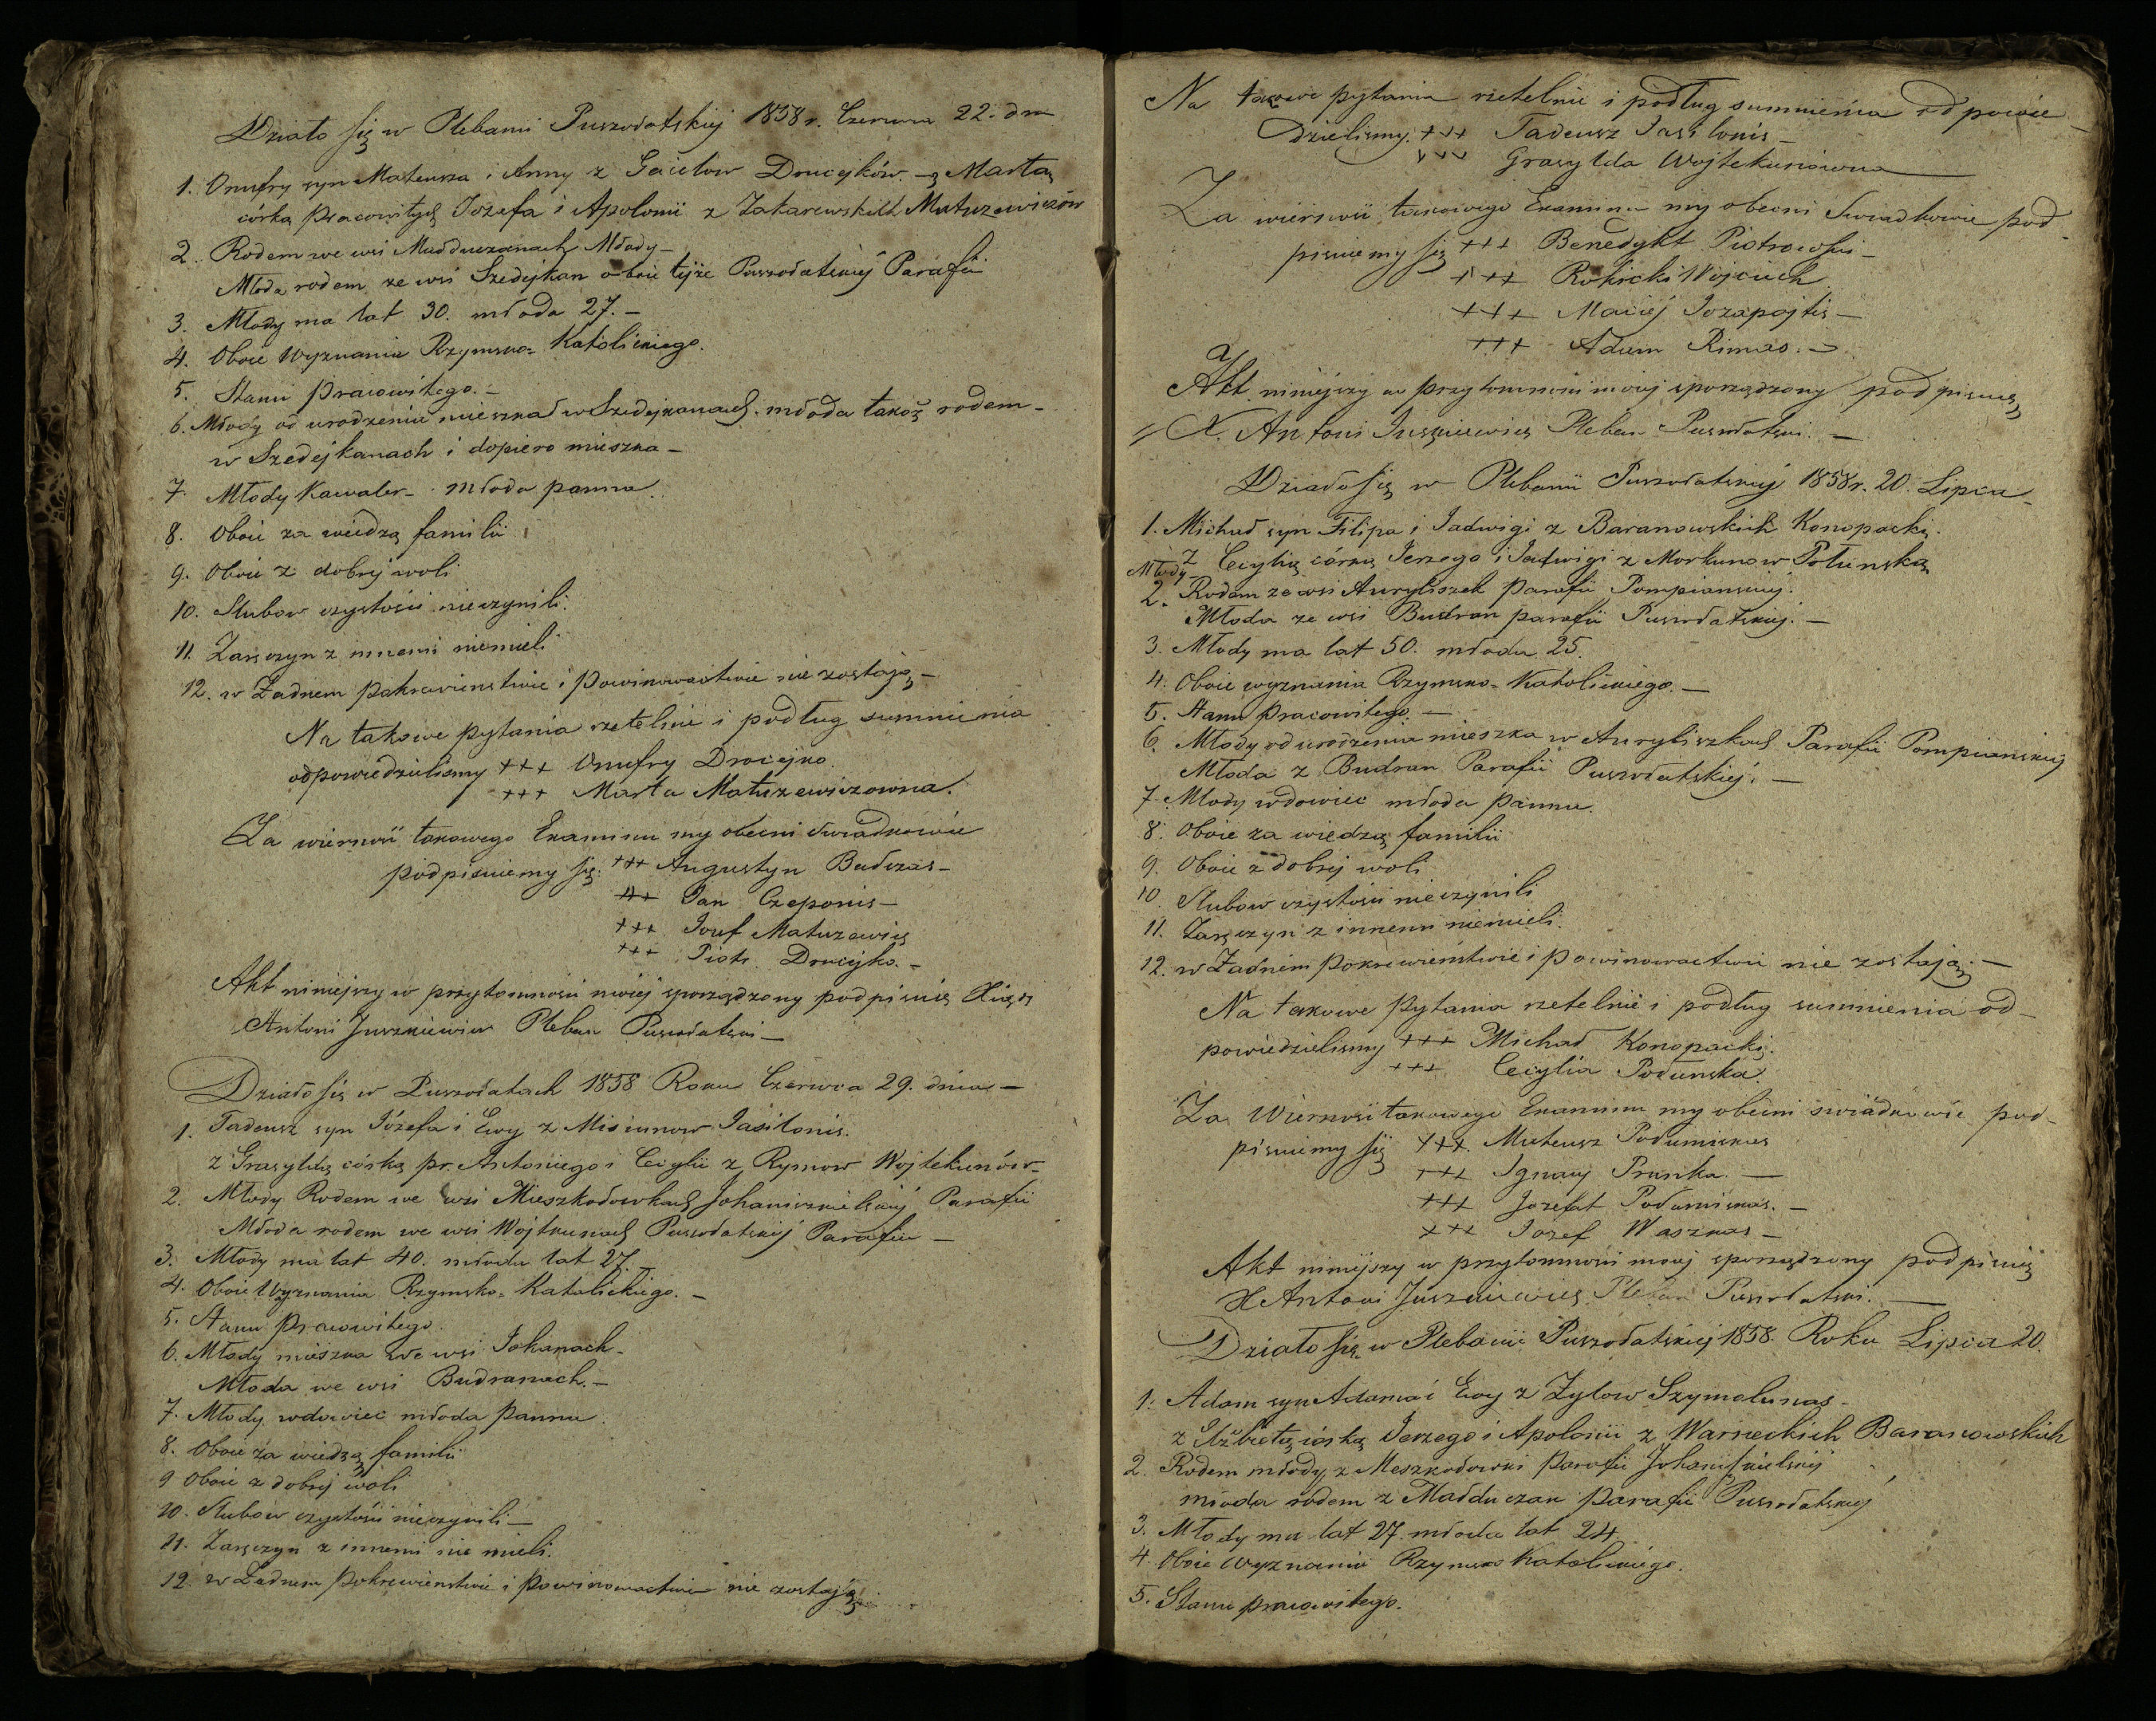 Działo się w Plebanii Puszołatskiej 1858 r. Czerwca 22. dn
1. Onufry syn Mateusza i Anny z Drucejków. z Martą
córką pracowitych Jozefa i Apolonii z Zakarewskich Matuzewiczów
2. Rodem we wsi Młody
Młoda rodem ze wsi Szedejkan oboie tyiże Puszołatskiej Parafii
3. Młody ma lat 30. młoda 27.
4. Oboie Wyznania Rzymsko= Katolickiego.
5. Stanu pracowitego.
6. Młody od urodzenia mieszkał w Szedejkanach. młoda takoż rodem
w Szedejkanach i dopiero mieszka
7. Młody Kawaler młoda panna.
8. Oboie za wiedzą familii
9. Oboie z dobrej woli
10. Slubow czystości nieczynili.
11. Zaręczyn z innemi niemieli
12. w Żadnem pokrewienstwie i powinowactwie nie zostają
Na takowe pytania rzetelnie i podług sumnienia
odpowiedzielismy +++ Onufry Drocejko.
+++ Marta Matuzewiczowna.
Za wierność takowego Examinu my obecni Swiadkowie
podpisuiemy się. +++ Augustyn Budczas
+++ Jan Czeponis
+++ Jozef Matuzewicz
+++ Piotr Drucejko.
Akt niniejszy w przytomności moiej sporządzony podpisuię Xiądz
Antoni Juszkiewicz Pleban Puszołatski
Działo się w Puszołatach 1858 Roku Czerwca 29. dnia
1. Tadeusz syn Józefa i Ewy z Misiunow Jasilonis.
z Grasyldą córką pr. Antoniego i Cecylii z Rymow Wojtekunów
2. Młody Rodem we wsi Mieszkołowkach Johaniszkielskiej Parafii
Młoda rodem we wsi Wojtkunach Puszołatskiej Parafii
3. Młody ma lat 40. młoda lat 27.
4. Oboie Wyznania Rzymsko= Katolickiego.
5. Stanu Pracowitego.
6. Młody mieszka we wsi Jokanach
Młoda we wsi Budranach.
7. Młody wdowiec młoda panna.
8. Oboie za wiedzą familii
9 Oboie z dobrej woli
10. Slubow czystości nieczynili
11. Zaręczyn z innemi nie mieli.
12. w Żadnem pokrewienstwie i powinowactwie nie zostają
Na takowe pytania rzetelnie i podług sumnienia odpowie
dzielismy. +++ Tadeusz Jasilonis
+++ Grasylda Wojtekunowna
Za wierność takowego Examinu my obecni Swiadkowie pod
pisuiemy się +++ Benedykt Piotrowski
+++ Rokicki Wojciech
+++ Maciej Jozapajtis
+++ Adam Rimas.
Akt niniejszy w przytomności moiej sporządzony podpisuię
X. Antoni Juszkiewicz Pleban Puszołatski.
Działo się w Plebanii Puszołatskiej 1858 r. 20. Lipca
1. Michał syn Filipa i Jadwigi z Baranowskich Konopacki.
z Cecylią córką Jerzego i Jadwigi z Morkunow Połunską
Młody
2. Rodem ze wsi Auryliszek Parafii Pompianskiej.
Młoda ze wsi Budran parafii Puszołatskiej.
3. Młody ma lat 50. młoda 25.
4. Oboie wyznania Rzymsko= Katolickiego.
5. Stanu Pracowitego.
6. Młody od urodzenia mieszka w Auryliszkach Parafii Pompianskiej
Młoda z Budran Parafii Puszołatskiej.
7. Młody wdowiec młoda panna.
8. Oboie za wiedzą familii
9. Oboie z dobrej woli
10. Slubow czystości nieczynili
11. Zaręczyn z innemi niemieli.
12. w Żadnem pokrewieństwie i powinowactwie nie zostają.
Na takowe Pytania rzetelnie i podług sumnienia od
powiedzielismy +++ Michał Konopacki.
+++ Cecylia Połunska.
Za Wierność takowego Examinu my obecni swiadkowie pod
pisuiemy się +++ Mateusz Podumiskas
+++ Ignacy Prunka.
+++ Jozefat Podumiskas.
+++ Jozef Waszkas
Akt niniejszy w przytomności moiej sporządzony podpisuię
X Antoni Juszkiewicz Pleban Puszołatski.
Działo się w Plebanii Puszołatskiej 1858. Roku Lipca 20.
1. Adam syn Adama i Ewy z Żylow Szymolunas
z Elżbietą córką Jerzego i Apolonii z Warneckich Baranowskich
2. Rodem młody z Meszkołowki Parafii Johaniszkielskiej
młoda rodem z Małduczan parafii Puszołatskiej
3. Młody ma lat 27. młoda lat 24.
4. Oboie Wyznania Rzymsko Katolickiego.
5. Stanu pracowitego.